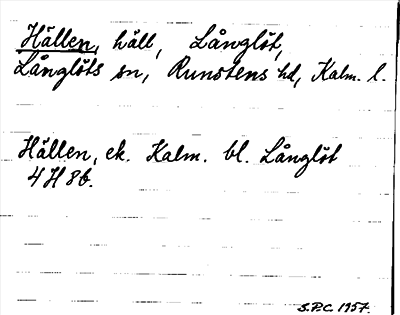 Hällen, häll, Långlöt,
Långlöts sn, Runstens hd, Kalm. l.
Hällen, ek. Kalm. bl. Långlöt
4 H 8 b.
S.P.C. 1957.